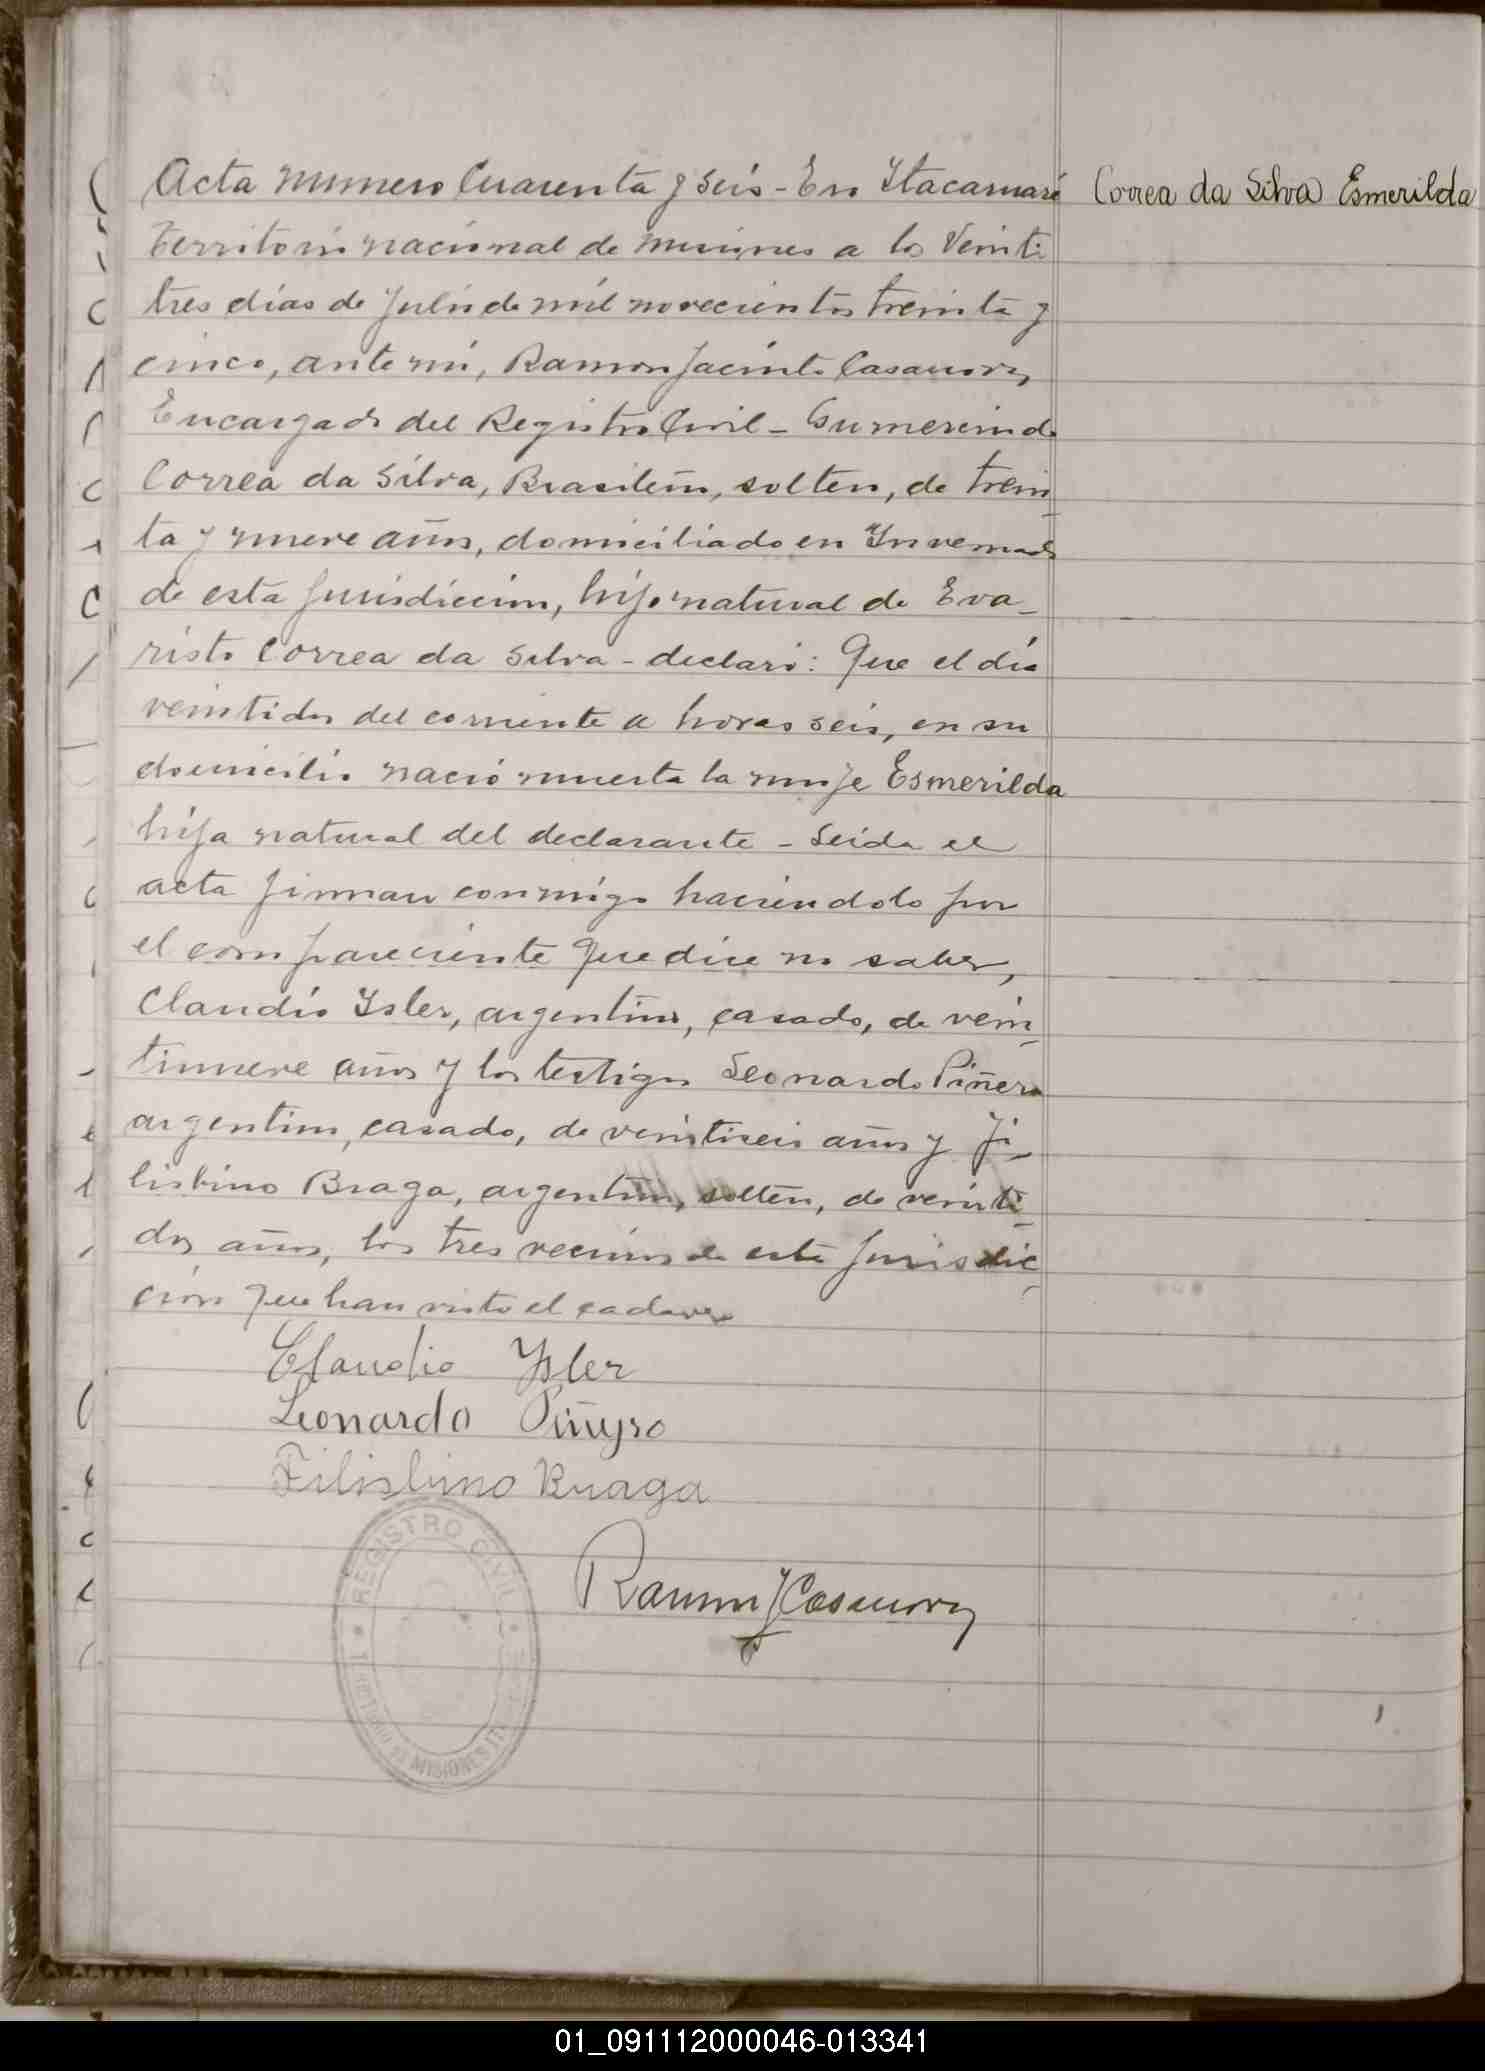 Acta numero Cuarenta y seis - En Itacaruaré
Correa da Silva Esmerilda
Territorio nacional de Misiones a los Veinti
tres días de Julio de mil novecientos treinta y
cinco, ante mí, Ramon Jacinto Casanova,
Encargado del Registro Civil - Gumersindo
Correa da Silva, Brasileño, soltero, de trein
ta y nueve años, domiciliado en Invernada
de esta Jurisdicción, hijo natural de Eva-
risto Correa da Silva - declaró: Que el día
veintidos del corriente a horas seis, en su
domicilio nació muerta la muje Esmerilda
hija natural del declarante - Leida el
acta firman conmigo haciendolo por
el compareciente que dice no saber,
Claudio Isler, argentino, casado, de vein
tinueve años y los testigos Leonardo Piñero
argentino, casado, de veintiseis años y Fi-
lisbino Braga, argentino, soltero, de veinti-
dos años, los tres vecinos de esta Jurisdic-
ción que han visto el cadaver
Claudio Isler
Leonardo Piñeyro
Filisbino Braga
Ramon J Casanova
REGISTRO CIVIL
TERRITORIO DE MISIONES
01_091112000046-013341